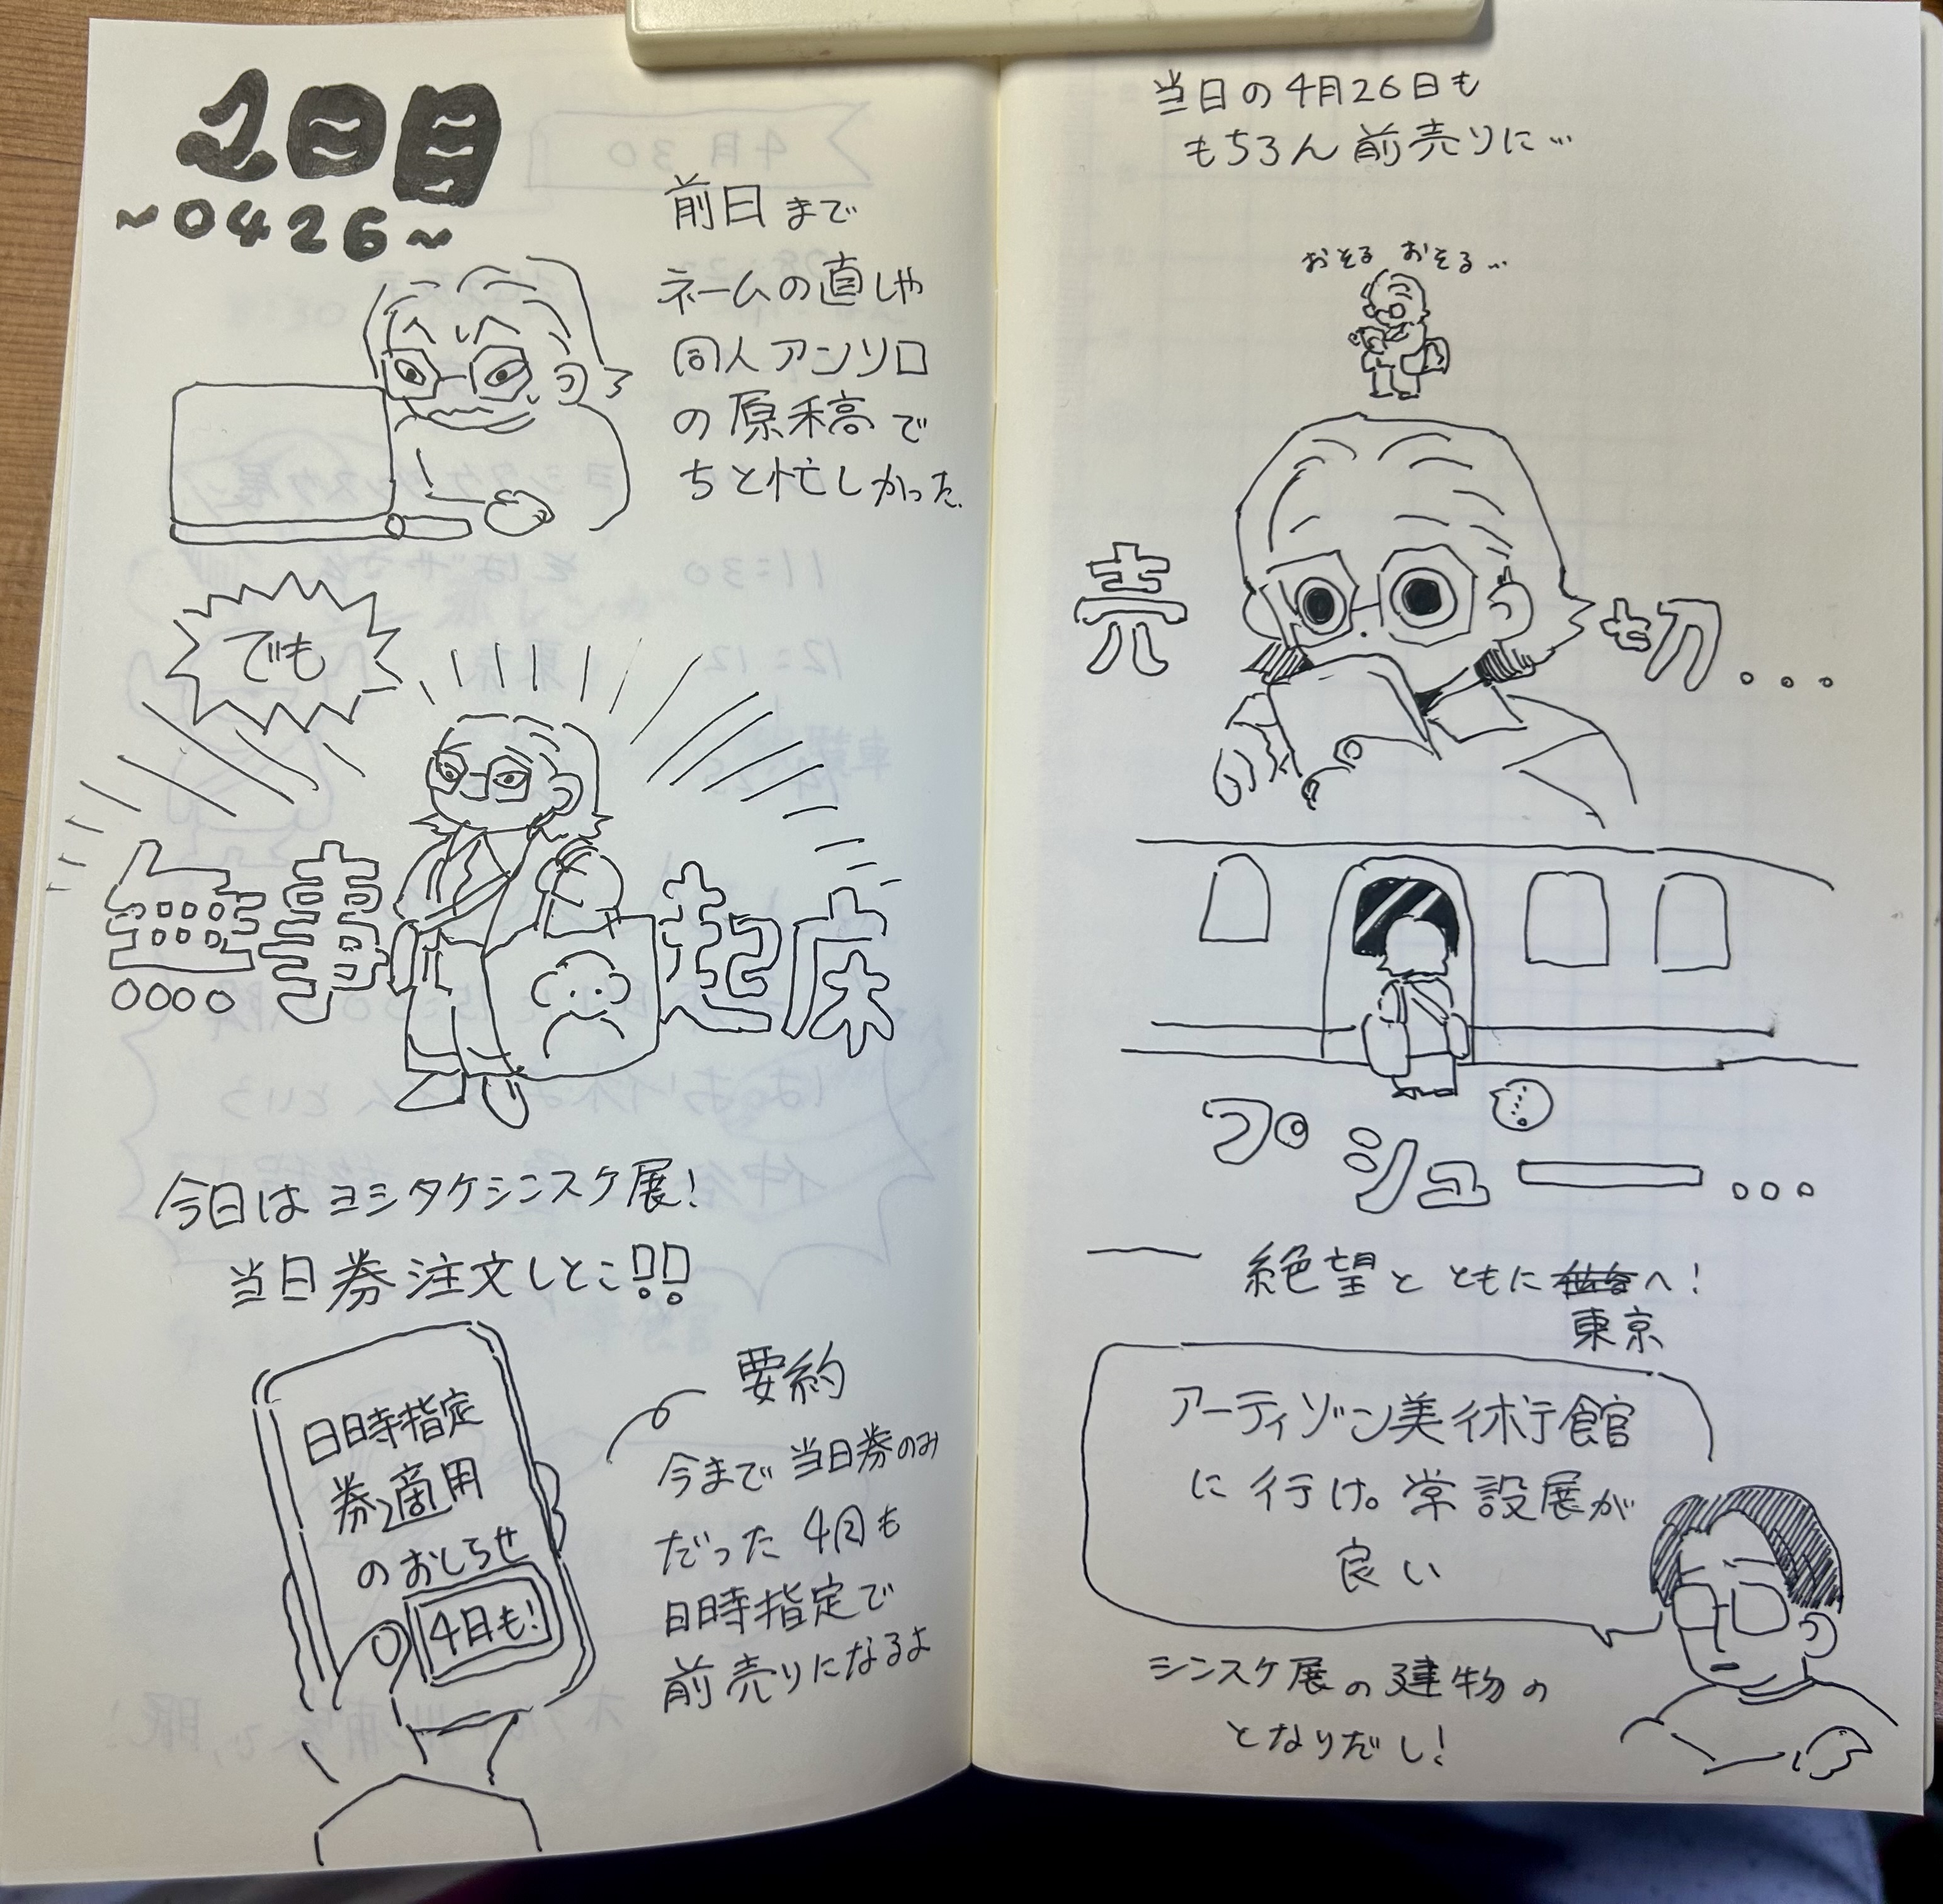 1日目
~0426~
前日まで
ネームの直しや
同人アンソロ
の原稿で
ちと忙しかった
でも
無事起床
今日はヨシタケシンスケ展!
当日券注文しとこ!!
日時指定
券適用
のおしらせ
4月も!
要約
今まで当日券のみ
だった4月も
日時指定で
前売りになるよ
当日の4月26日も
もちろん前売りに…
おそる おそる…
売切...
プシュー...
絶望とともに仙台へ!
東京
アーティゾン美術館
に行け。常設展が
良い
シンスケ展の建物の
となりだし!